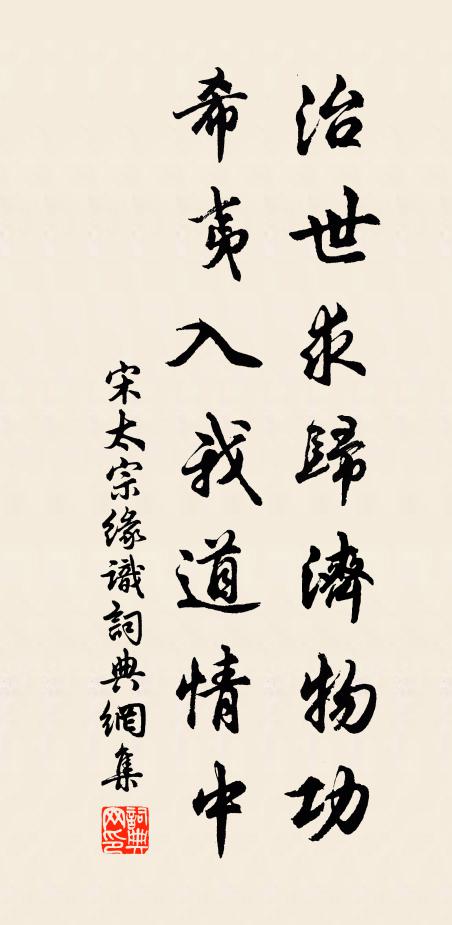 治世求歸濟物功
希夷入我道情中
宋太宗緣識詞典網集
詞典網印